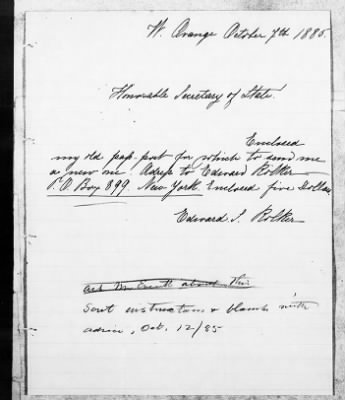 W. Orange October 7th 1885.
Honorable Secretary of State.
Enclosed
my old pap-port for which to send me
a new one, Adress to Edward Rolker
P.O. Box 899. New York Enclosed five Dollars
Edward S. Rolker
ask about this
Sent instructions & blanks with
advice, Oct. 12/85